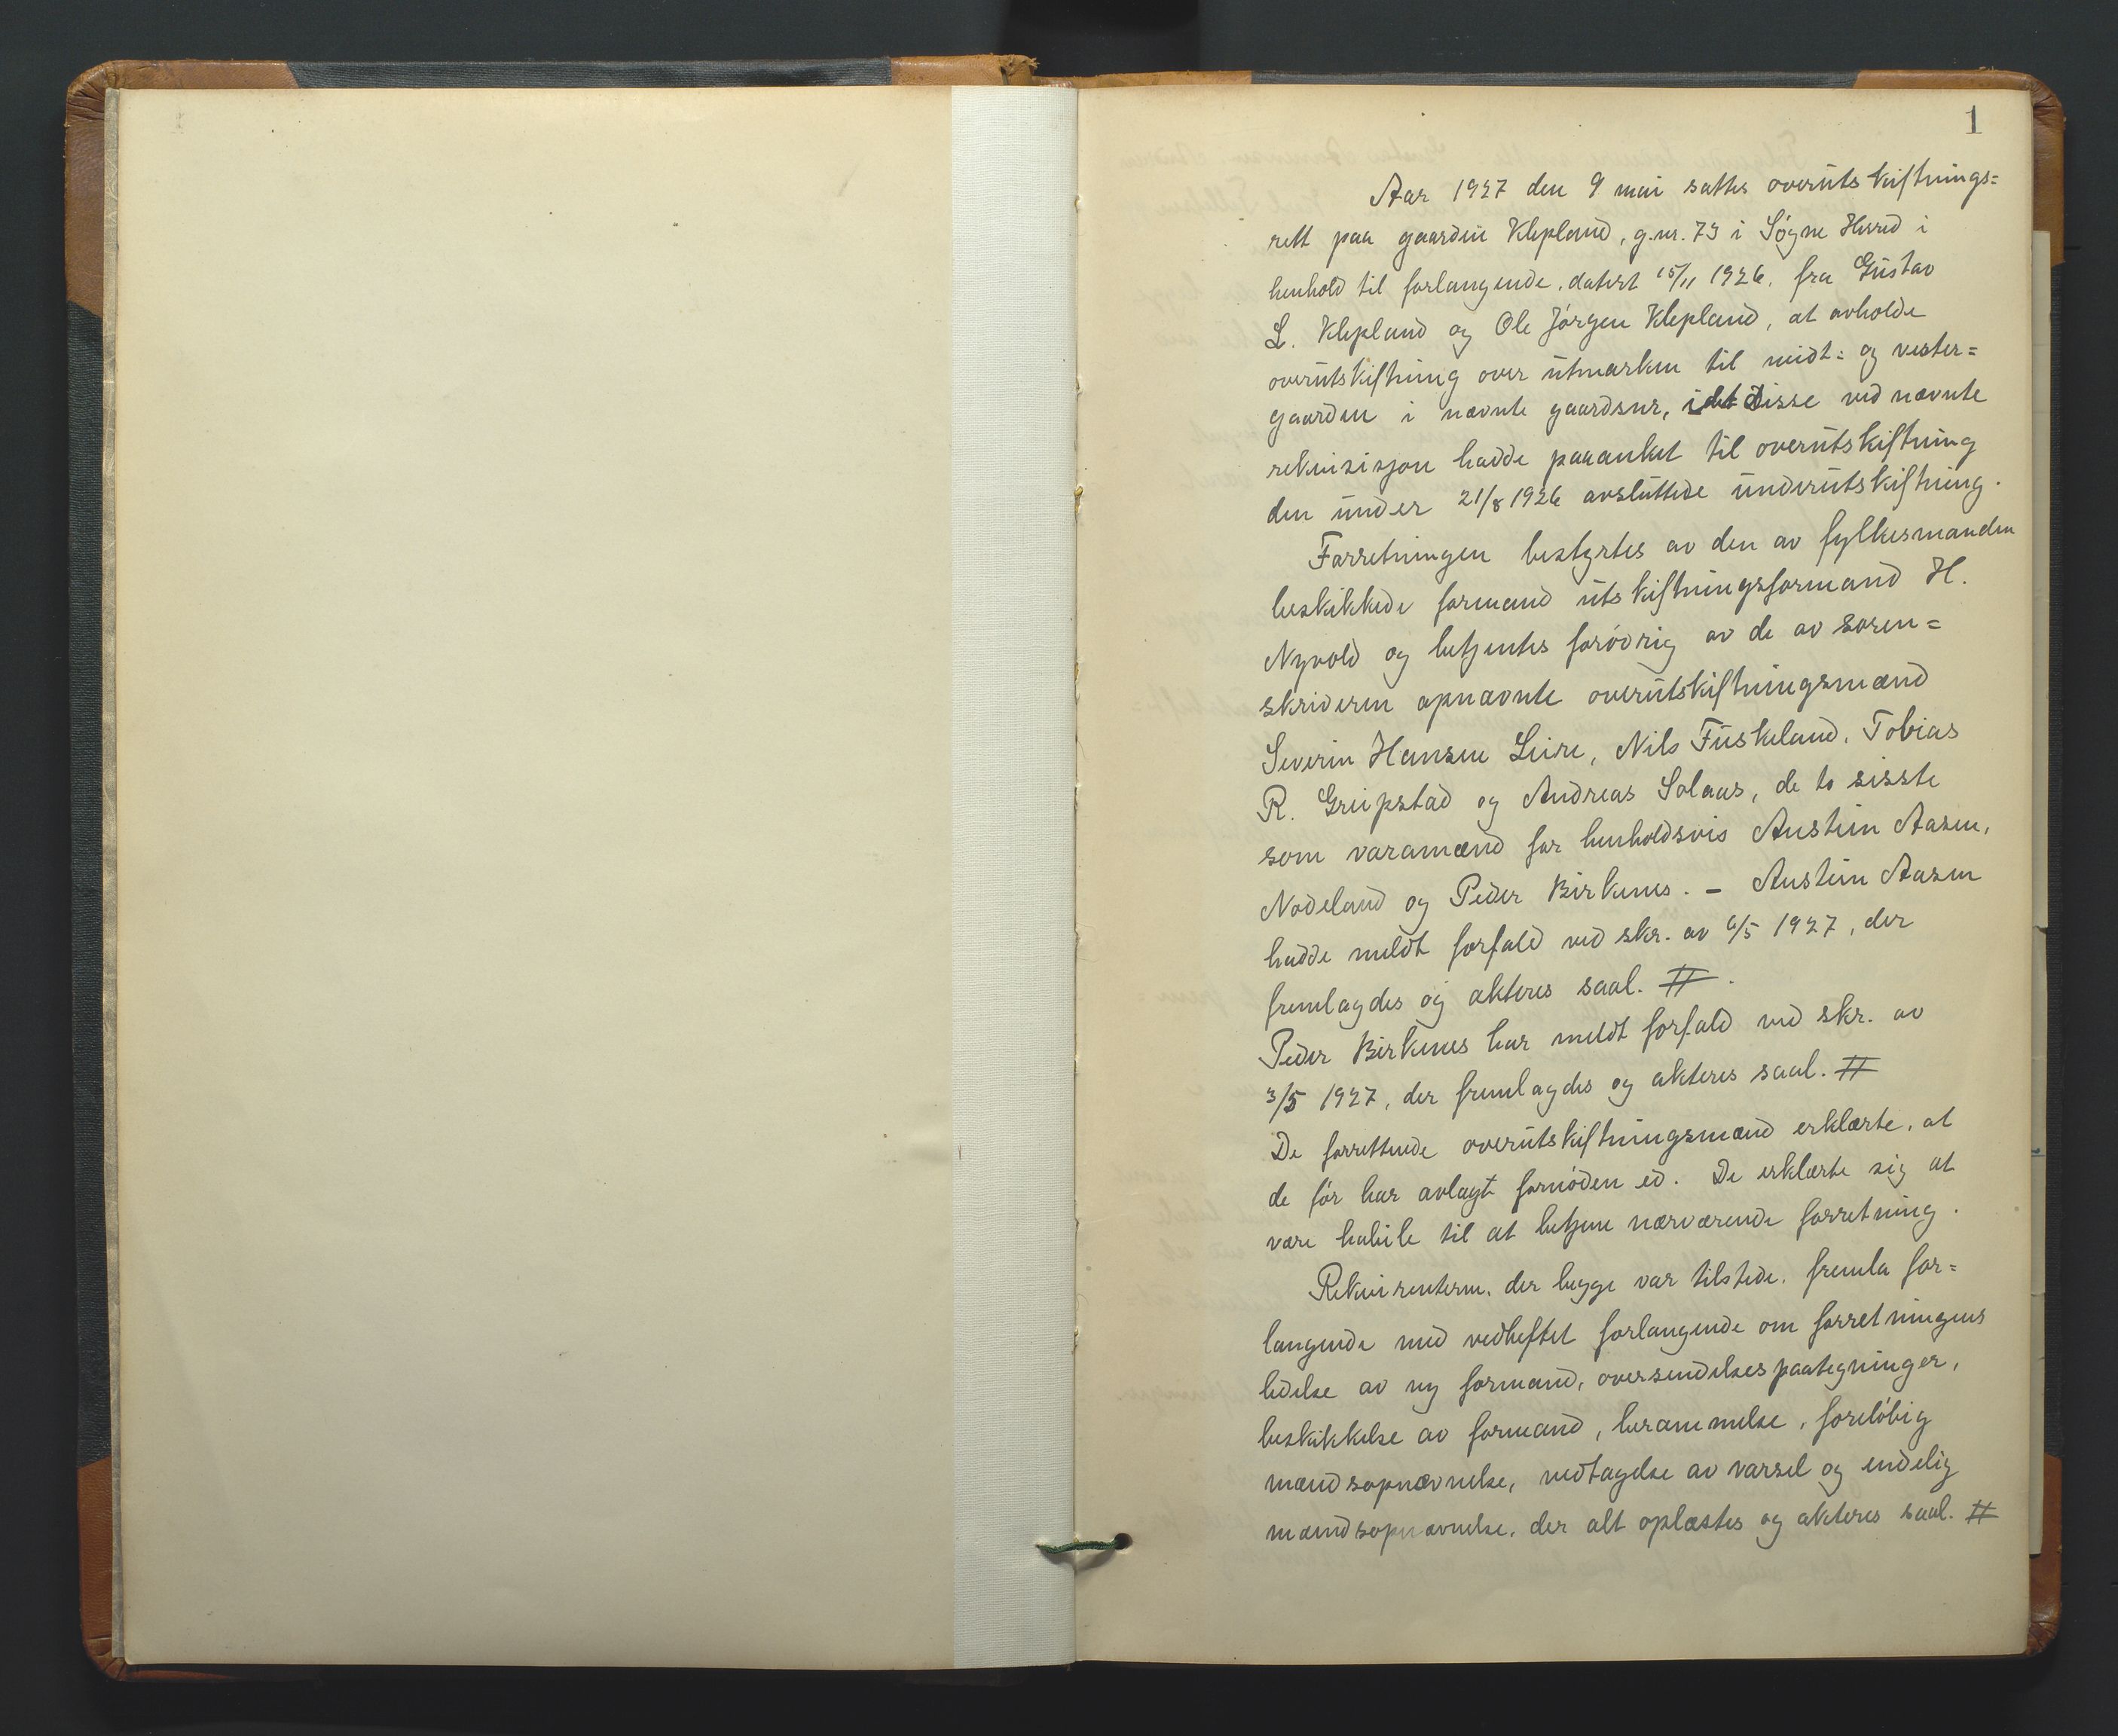 1
Aar 1927 den 9 mai sattes overutskiftnings=
rett paa gaarden Klepland, g.nr. 73 i Søgne Herred i
henhold til forlangende, datert 15/11 1926, fra Gustav
L. Klepland og Ole Jørgen Klepland, at avholde
overutskiftning over utmarken til midt= og vester=
gaarden i nævnte gaardsnr, idet disse ved nævnte
rekvisisjon hadde paaanket til overutskiftning
den under 21/8 1926 avsluttede underutskiftning.
Forretningen bestyrtes av den av fylkesmanden
beskikkede formand utskiftningsformand H.
Nyvold og betjentes forøvrig av de av soren=
skriveren opnævnte overutskiftningsmænd
Severin Hansen Leire, Nils Fuskeland, Tobias
R. Greipstad og Andreas Solaas, de to sisste
som varamænd for henholdsvis Austein Aasen,
Nodeland og Peder Birkenes. – Austein Aasen
hadde meldt forfald ved skr. av 6/5 1927, der
fremlagdes og akteres saal. #.
Peder Birkenes har meldt forfald ved skr. av
3/5 1927, der fremlagdes og akteres saal. #
De forrettende overutskiftningsmænd erklærte, at
de før har avlagt fornøden ed. De erklærte sig at
være habile til at betjene nærværende forretning.
Rekvirenterne, der begge var tilstede, fremla for=
langende med vedheftet forlangende om forretningens
ledelse av ny formand, oversendelsespaategninger,
beskikkelse av formand, berammelse, foreløbig
mændsopnævnelse, vedtagelse av varsel og endelig
mændsopnævnelse, der alt oplæstes og akteres saal. #